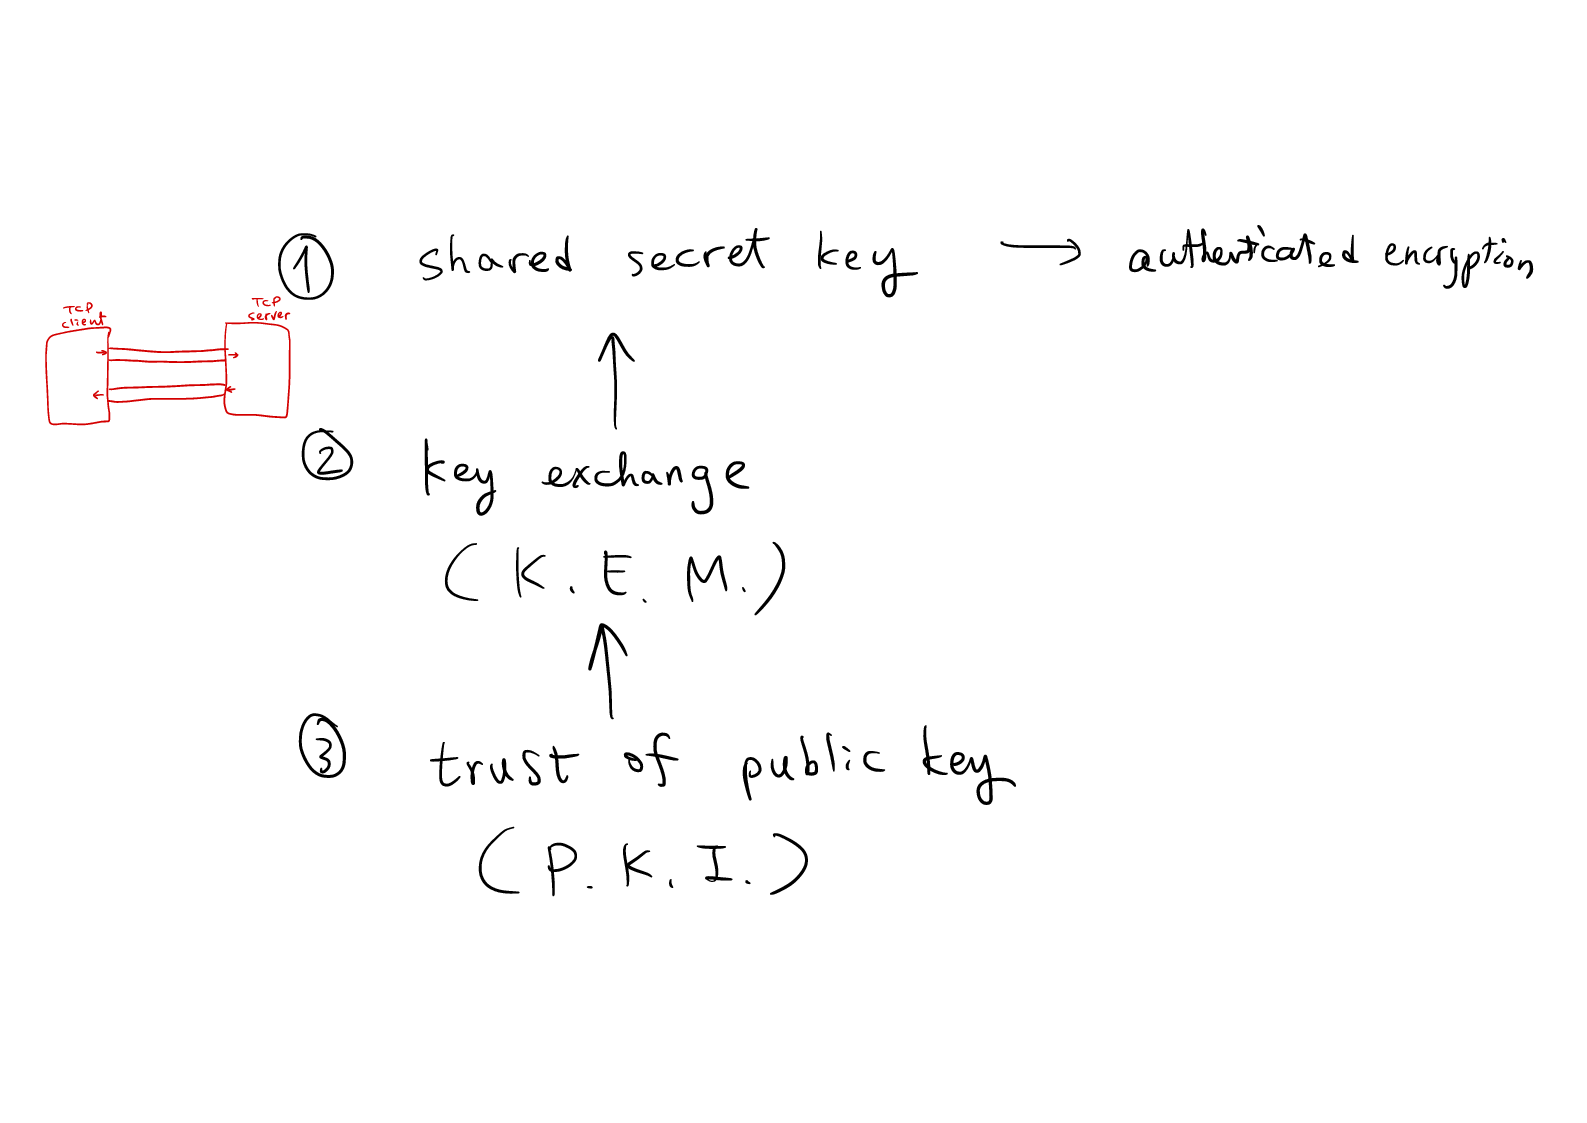 ① shared secret key → authenticated encryption
TCP
client
TCP
server
② key exchange
(K.E.M.)
③ trust of public key
(P.K.I.)